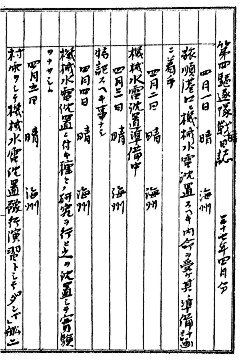 第四駆逐隊戦時日誌 三十七年四月分
四月一日 晴 海州
旅順港口ニ機械水雷沈置スヘキ内命ヲ受ケ其準備
ニ着手
四月二日 晴 海州
機械水雷沈置準備中
四月三日 晴 海州
特記スヘキ事ナシ
四月四日 晴 海州
機械水雷沈置ニ付キ種々研究ヲ行ヒ之カ沈置ノ実験
ヲナセシム
四月五日 晴 海州
村雨ヲシテ機械水雷沈置発行演習トシテ